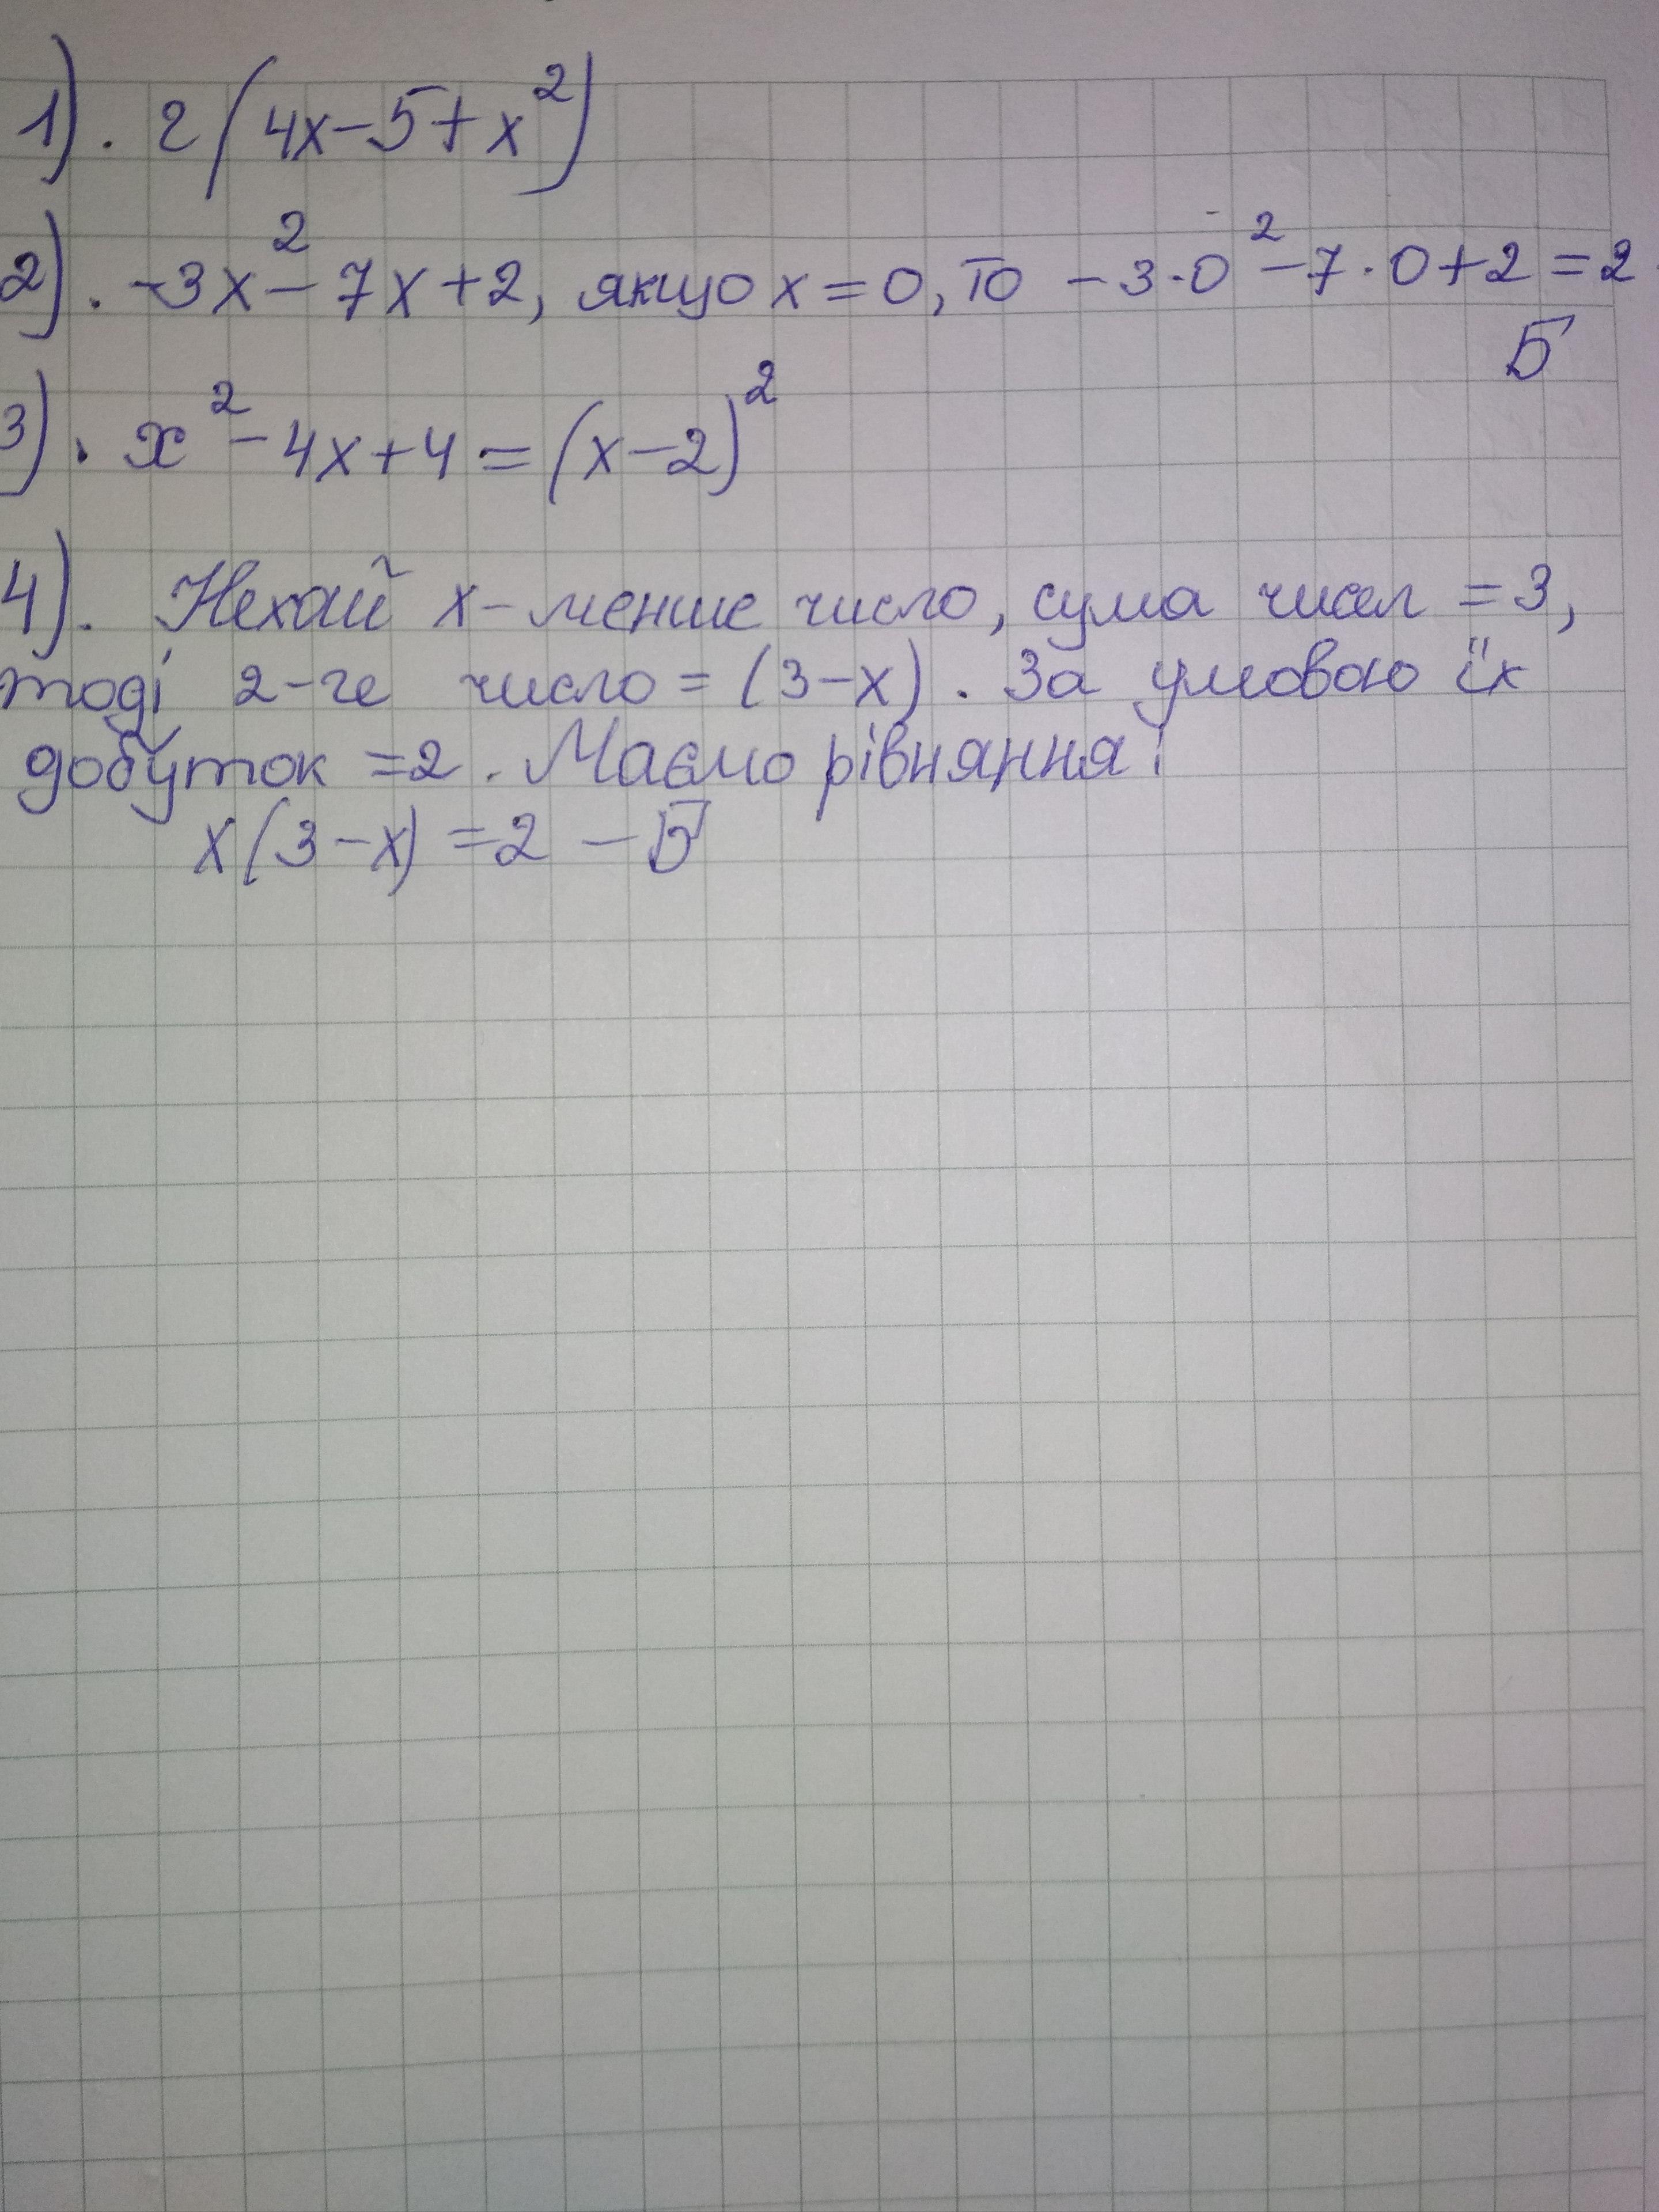 1). 2(4x-5+x²)
2). -3x²-7x+2, якщо x=0, то -3·0²-7·0+2=2
Б
3). x²-4x+4=(x-2)²
4). Нехай x-менше число, сума чисел =3,
тоді 2-ге число=(3-x). За умовою їх
добуток =2. Маємо рівняння:
x(3-x)=2 - Б